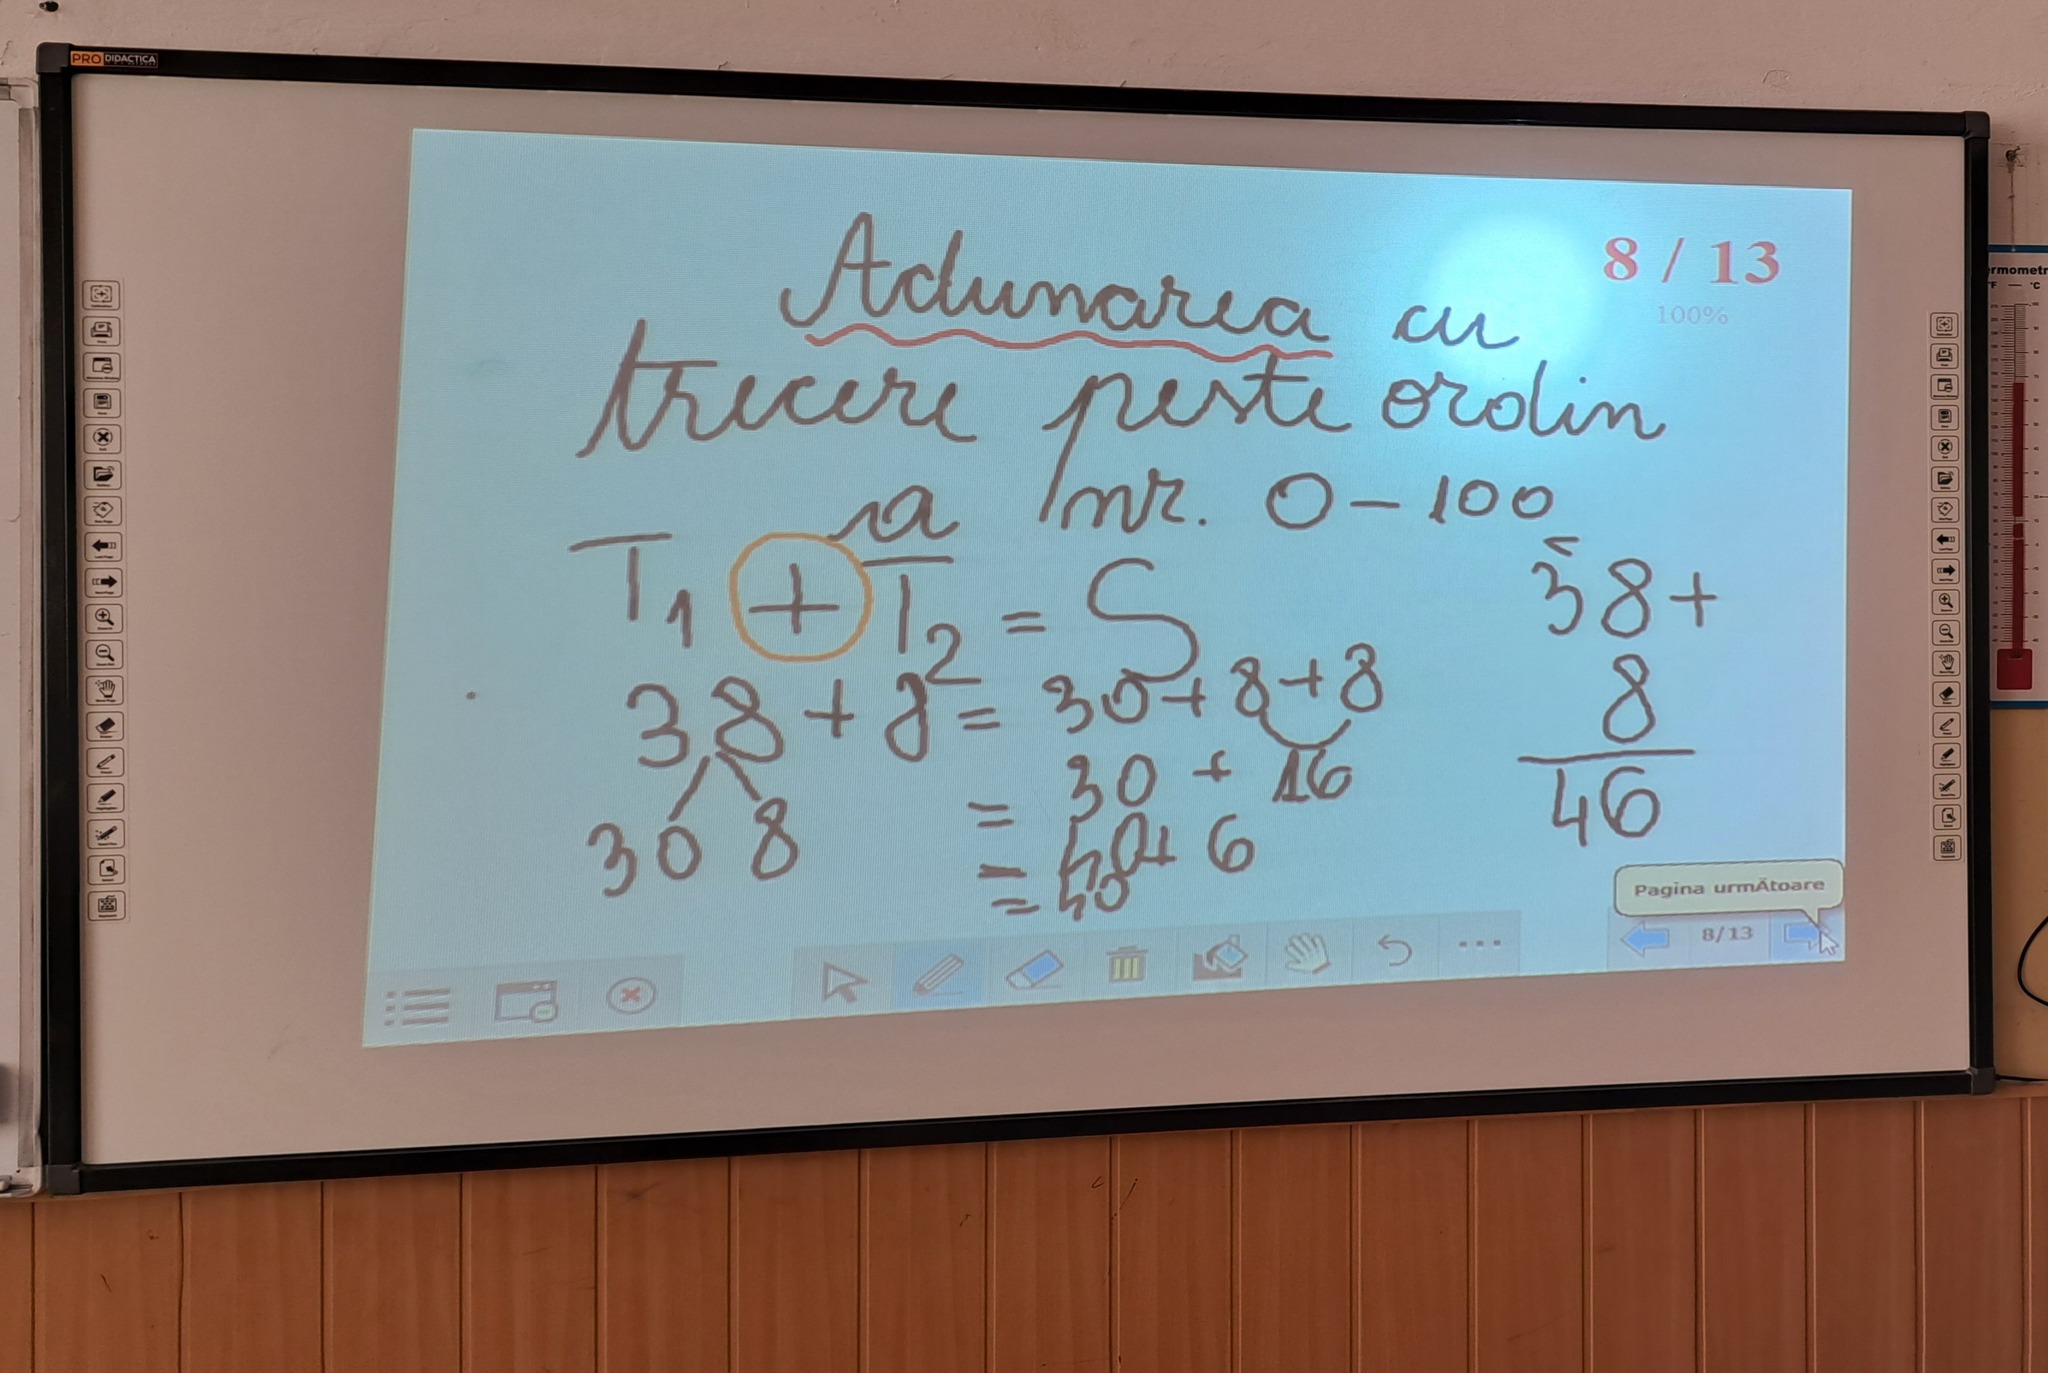 PRO DIDACTICA
8 / 13
100%
Adunarea cu
trecere peste ordin
a nr. 0 - 100
T1 + T2 = S
38 + 8 = 30 + 8 + 8
30 8
= 30 + 16
= 40 + 6
= 40
38 +
8
46
Pagina urmÄtoare
8/13
ermometr
°F — °C